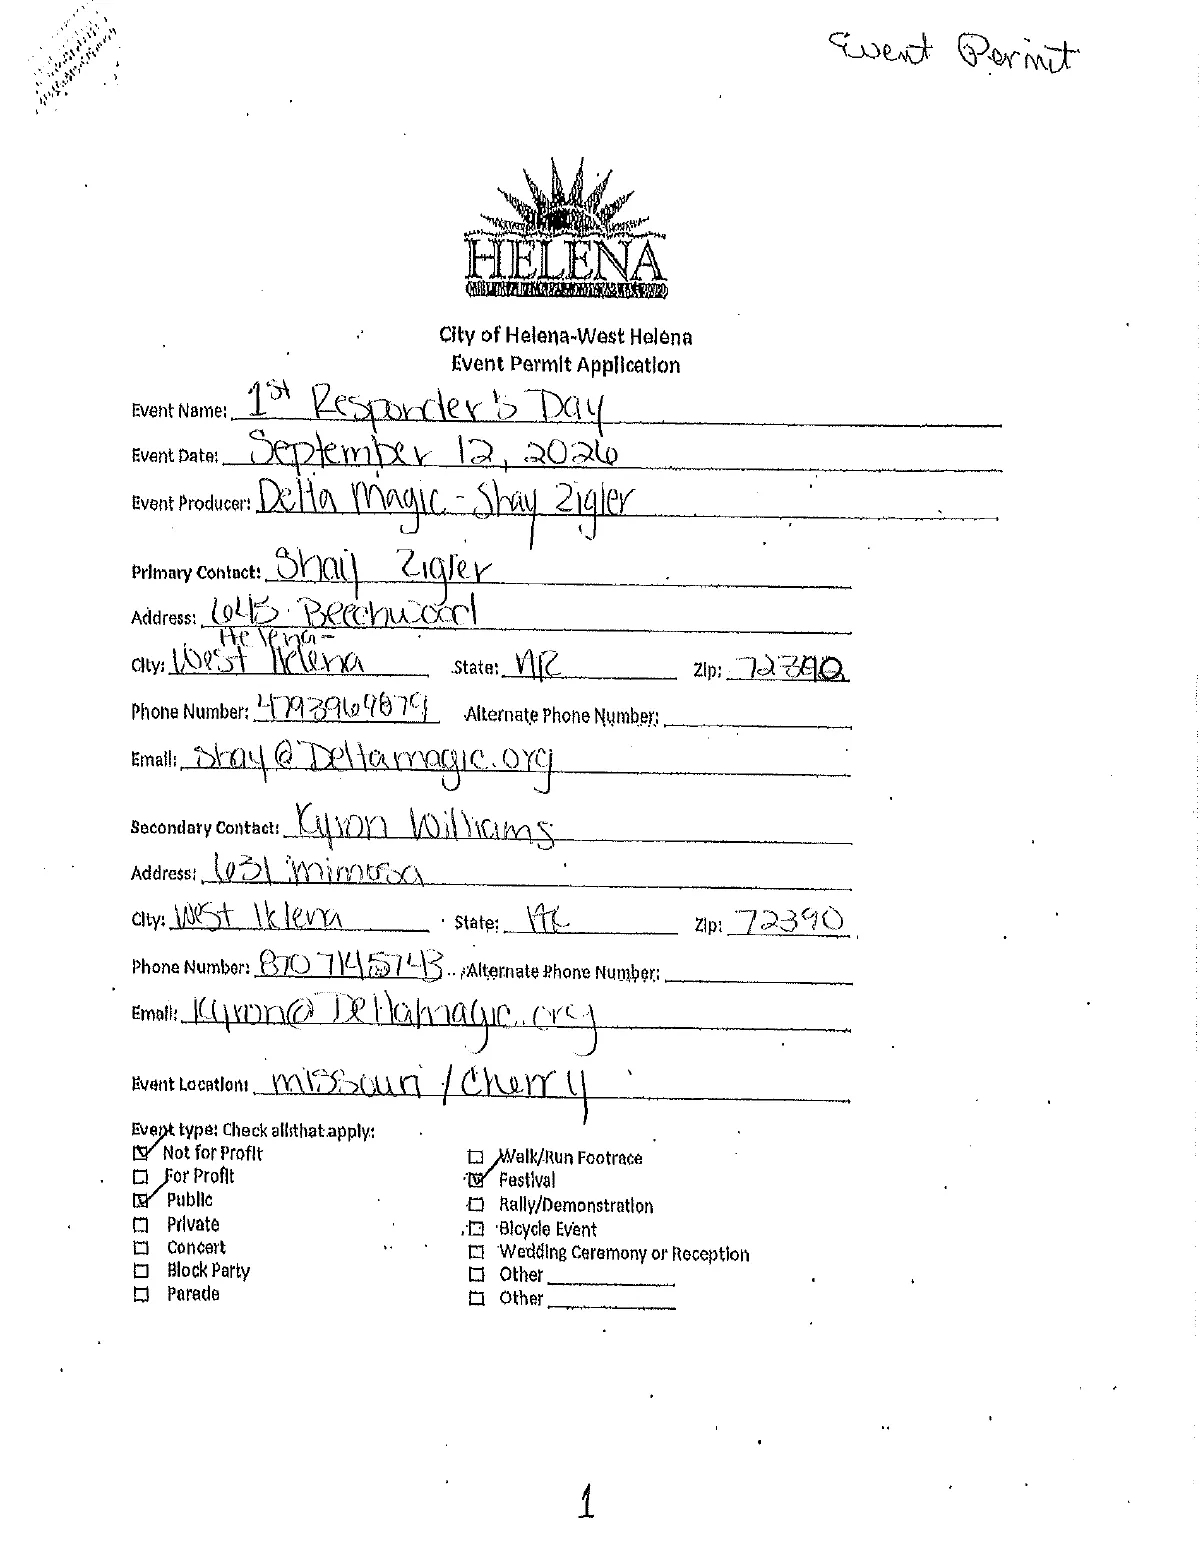 Event Permit
HELENA
City of Helena-West Helena
Event Permit Application
Event Name: 1st Responder's Day
Event Date: September 12, 2026
Event Producer: Delta Magic - Shay Zigler
Primary Contact: Shay Zigler
Address: 645 Beechwood
Helena-
City: West Helena State: AR Zip: 72390
Phone Number: Alternate Phone Number:
Email: Shay@Deltamagic.org
Secondary Contact: Kyron Williams
Address: 631 mimosa
City: West Helena State: AR Zip: 72390
Phone Number: 870 714 5743 Alternate Phone Number:
Email: Kyron@Deltamagic.org
Event Location: missouri / Cherry
Event type: Check all that apply:
Not for Profit
Walk/Run Footrace
For Profit
Festival
Public
Rally/Demonstration
Private
Bicycle Event
Concert
Wedding Ceremony or Reception
Block Party
Other
Parade
Other
1